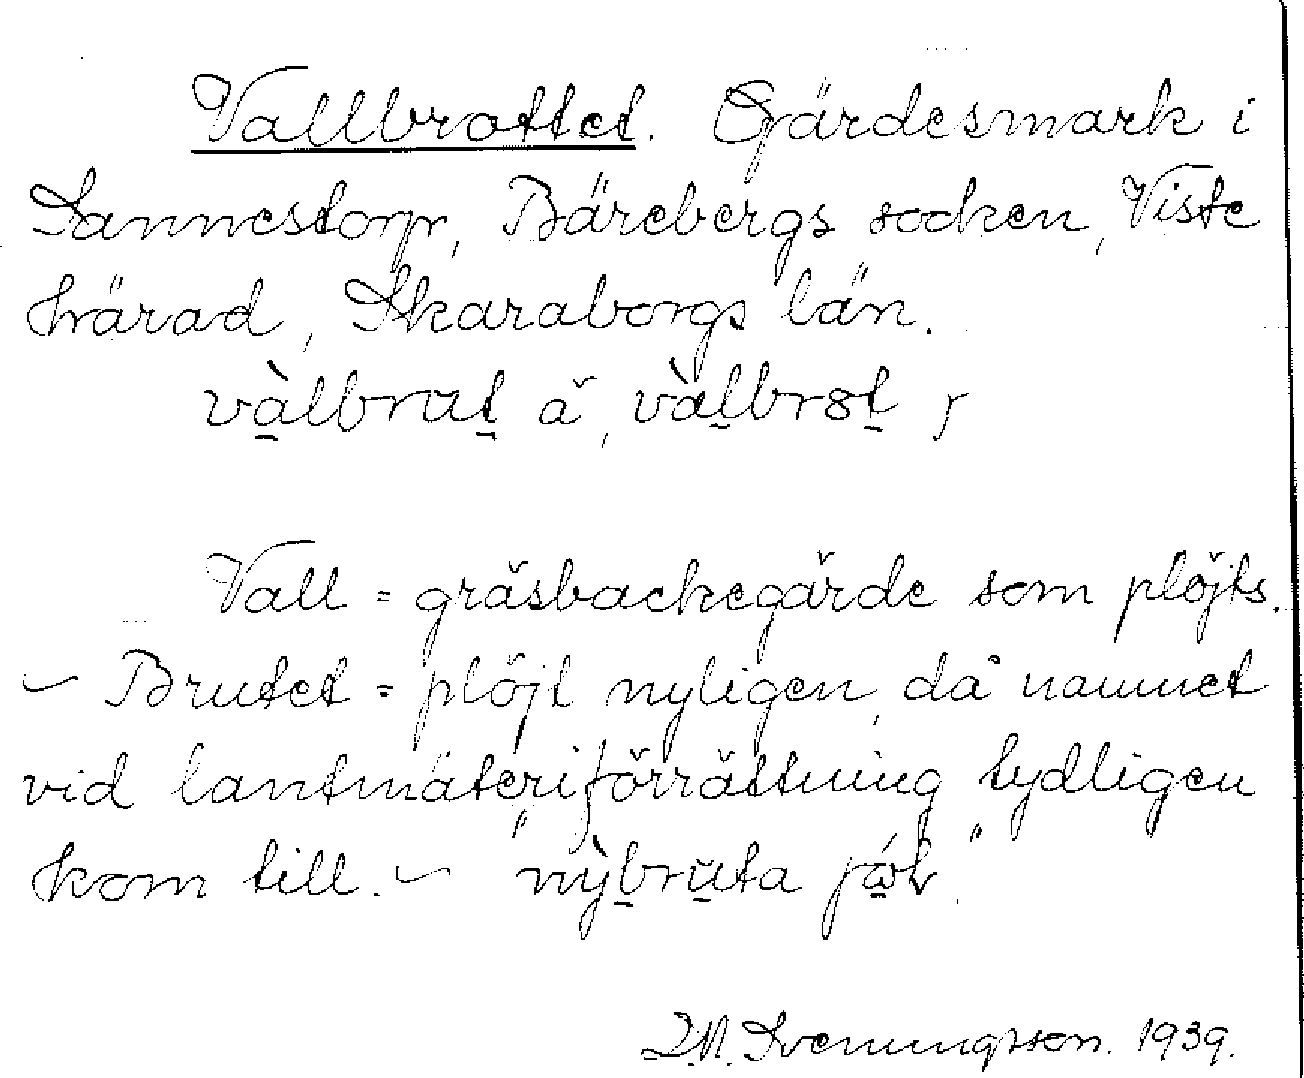 Vallbrottet. Gärdesmark i
Sannestorp, Bärebergs socken, Viste
härad, Skaraborgs län.
vàlbrut å, vàlbrøt,
Vall = gräsbackegärde som plöjts.
– Brutet = plöjt nyligen, då namnet
vid lantmäteriförrättning tydligen
kom till. – "nỳbruta jóɽ"
Sveningsson. 1939.